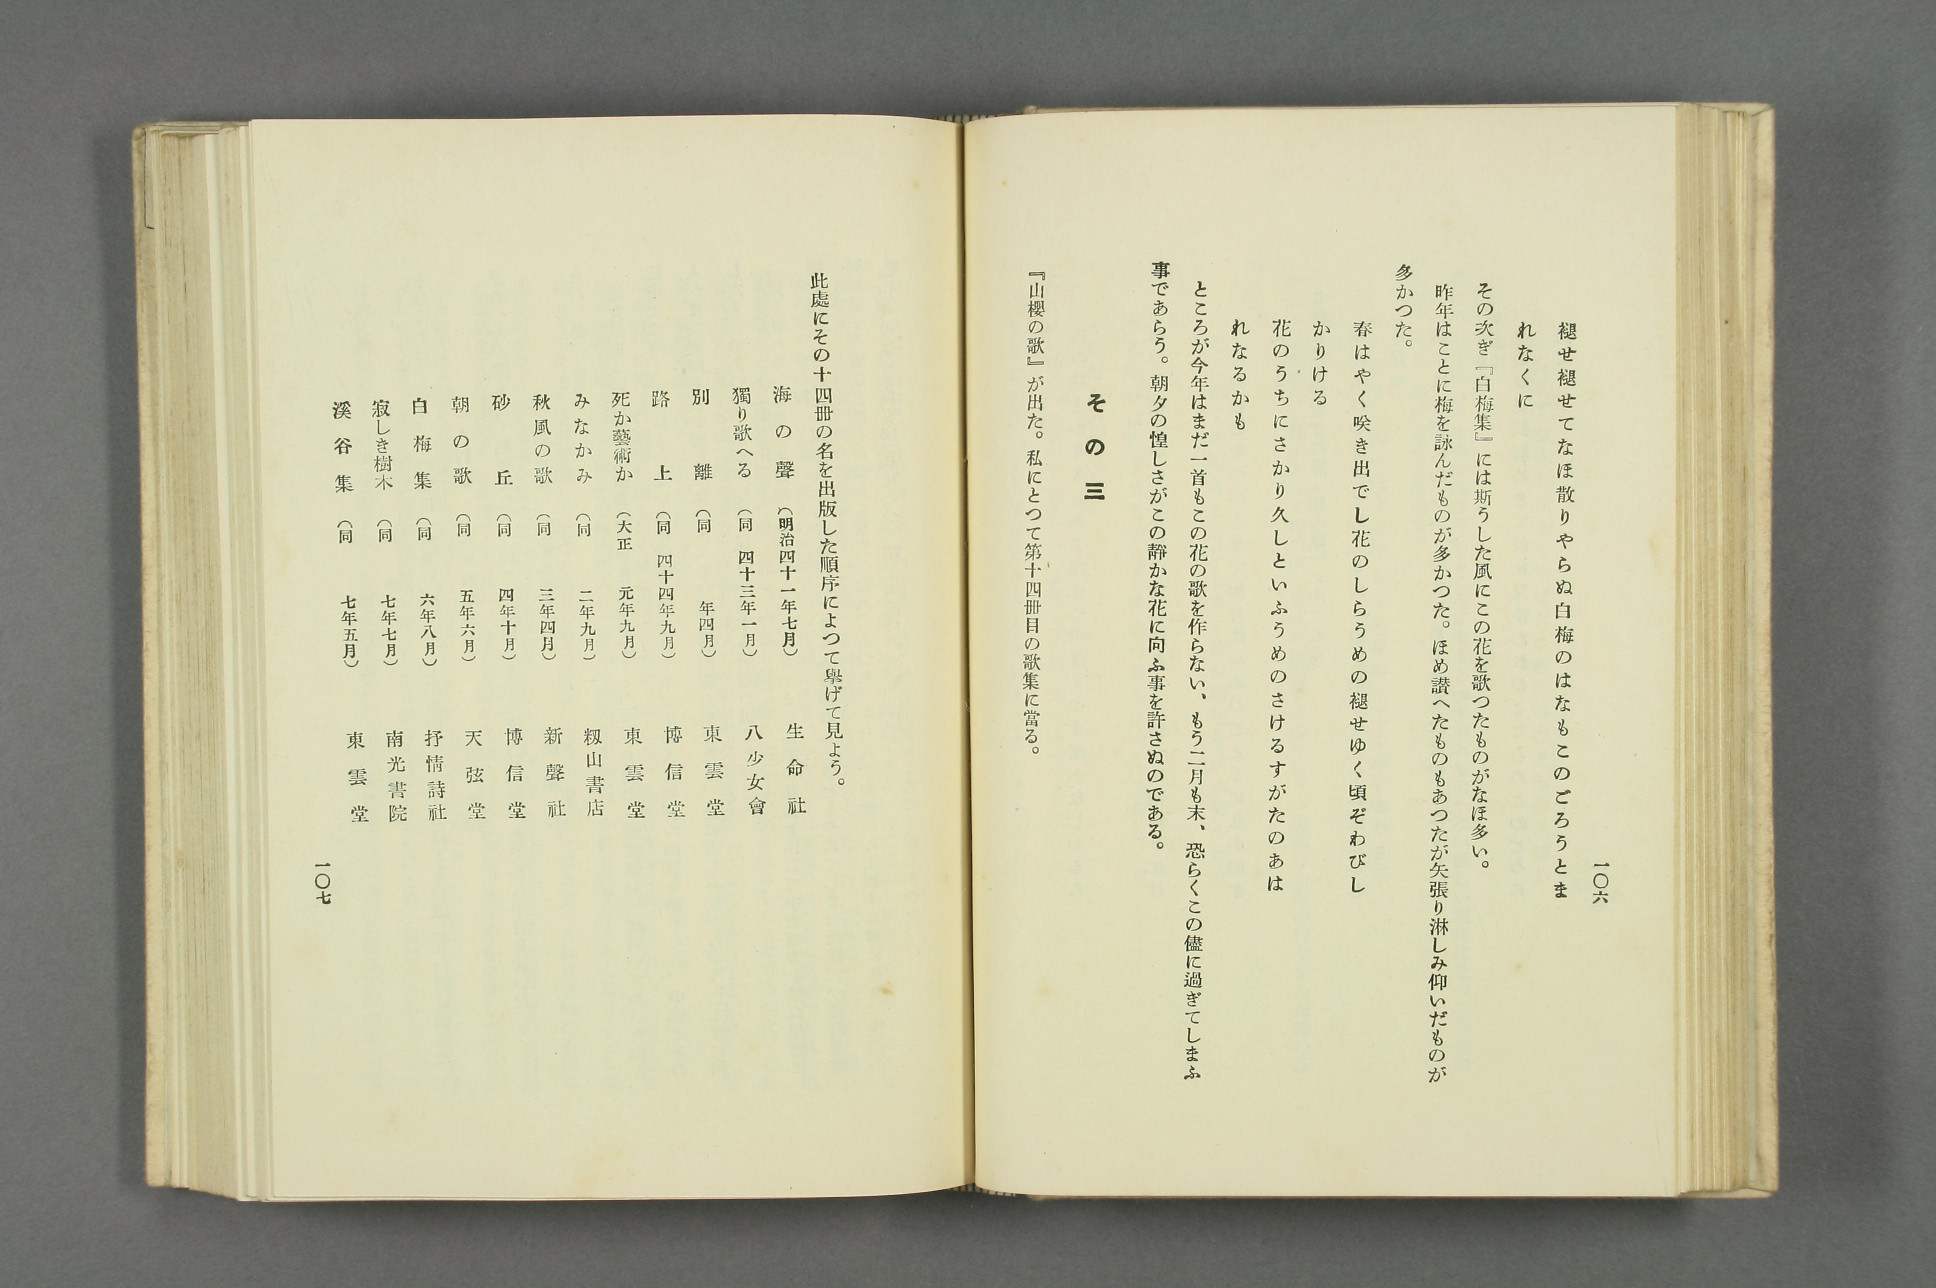 褪せ褪せてなほ散りやらぬ白梅のはなもこのごろうとま
れなくに
その次ぎ『白梅集』には斯うした風にこの花を歌つたものがなほ多い。
昨年はことに梅を詠んだものが多かつた。ほめ讃へたものもあつたが矢張り淋しみ仰いだものが
多かつた。
春はやく咲き出でし花のしらうめの褪せゆく頃ぞわびし
かりける
花のうちにさかり久しといふうめのさけるすがたのあは
れなるかも
ところが今年はまだ一首もこの花の歌を作らない、もう二月も末、恐らくこの儘に過ぎてしまふ
事であらう。朝夕の惶しさがこの靜かな花に向ふ事を許さぬのである。
その三
『山櫻の歌』が出た。私にとつて第十四冊目の歌集に當る。
一〇六
此處にその十四冊の名を出版した順序によつて擧げて見よう。
海の聲（明治四十一年七月）生命社
獨り歌へる（同 四十三年一月）八少女會
別離（同 年四月）東雲堂
路上（同 四十四年九月）博信堂
死か藝術か（大正 元年九月）東雲堂
みなかみ（同 二年九月）籾山書店
秋風の歌（同 三年四月）新聲社
砂丘（同 四年十月）博信堂
朝の歌（同 五年六月）天弦堂
白梅集（同 六年八月）抒情詩社
寂しき樹木（同 七年七月）南光書院
溪谷集（同 七年五月）東雲堂
一〇七